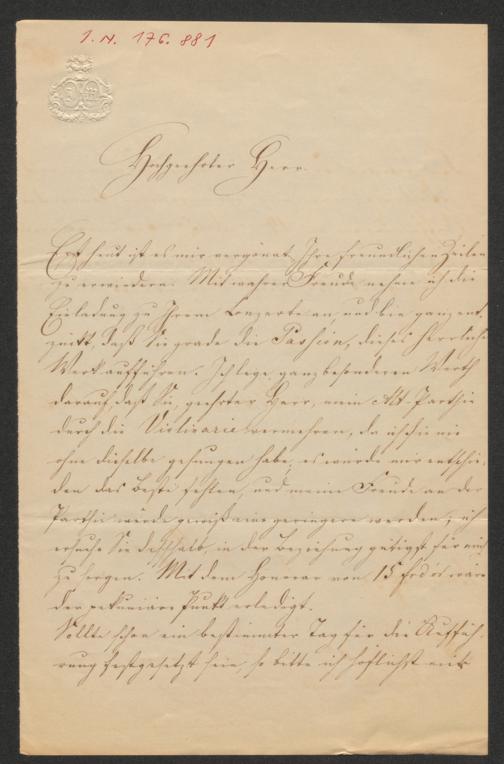 I. N. 176.881
Hochgeehrter Herr.
Erst heut ist es mir vergönnt, Ihre freundlichen Zeilen
zu erwiedern. Mit wahrer Freude nehme ich die
Einladung zu Ihrem Conzerte an, und bin ganz ent,
zückt, daß Sie grade die Passion, dieses herrliche
Werk aufführen. Ich lege ganz besonderen Werth
darauf, daß Sie, geehrter Herr, mein Alt Parthie
durch die Violinarie vermehren, da ich sie nie
ohne dieselbe gesungen habe, es würde mir entschie,
den das Beste fehlen, und meine Freude an der
Parthie würde gewiß eine geringere werden; ich
ersuche Sie deßhalb, in der Beziehung gütigst für mich
zu sorgen. Mit dem Honorar von 15 frdór wäre
der pekuniäre Punkt erledigt.
Sollte schon ein bestimmter Tag für die Auffüh,
rung festgesetzt sein, so bitte ich höflichst mich